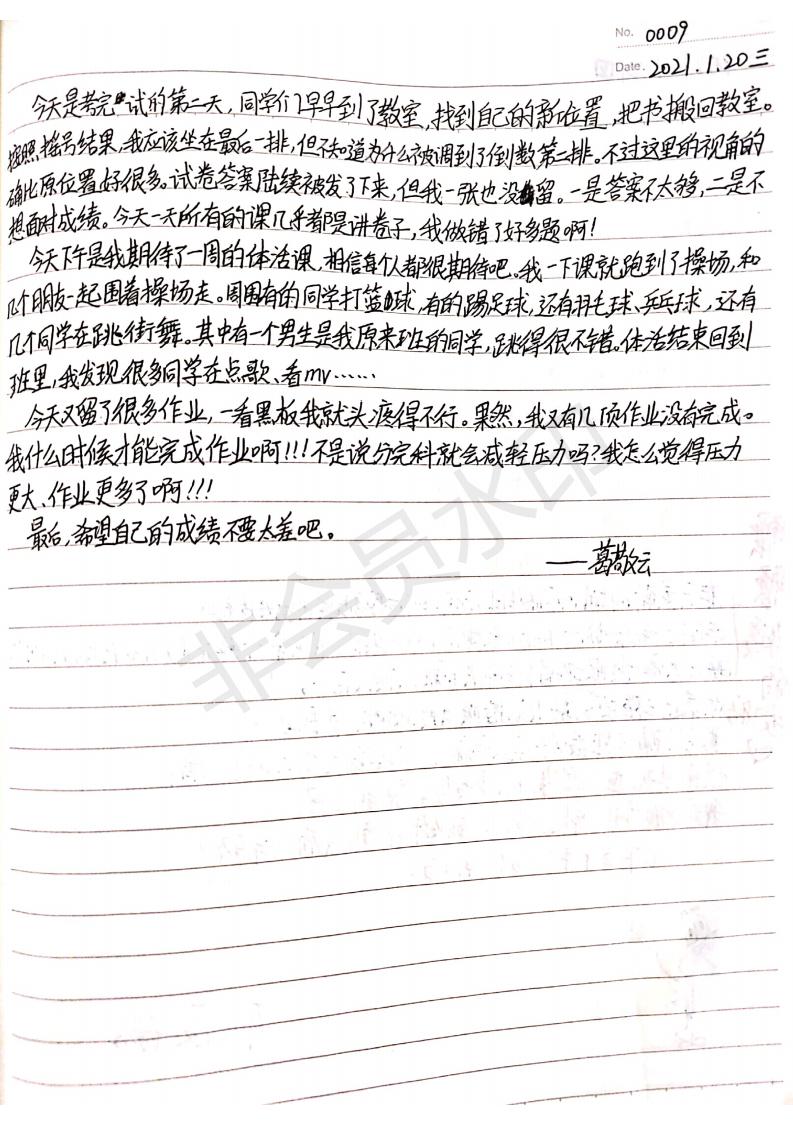 No. 0009
Date. 2021.1.20 三
今天是考完试的第二天，同学们早早到了教室，找到自己的新位置，把书搬回教室。
按照摇号结果，我应该坐在最后一排，但不知道为什么被调到了倒数第二排。不过这里的视角的
确比原位置好很多。试卷答案陆续被发了下来，但我一张也没留。一是答案不太够，二是不
想面对成绩。今天一天所有的课几乎都是讲卷子，我做错了好多题啊！
今天下午是我期待了一周的体活课，相信每个人都很期待吧。我一下课就跑到了操场，和
几个朋友一起围着操场走。周围有的同学打篮球，有的踢足球，还有羽毛球、乒乓球，还有
几个同学在跳街舞。其中有一个男生是我原来班的同学，跳得很不错。体活结束回到
班里，我发现很多同学在点歌、看mv……
今天又留了很多作业，一看黑板我就头疼得不行。果然，我又有几项作业没有完成。
我什么时候才能完成作业啊!!!不是说分完科就会减轻压力吗?我怎么觉得压力
更大、作业更多了啊!!!
最后，希望自己的成绩不要太差吧。
——葛敬云
非会员水印